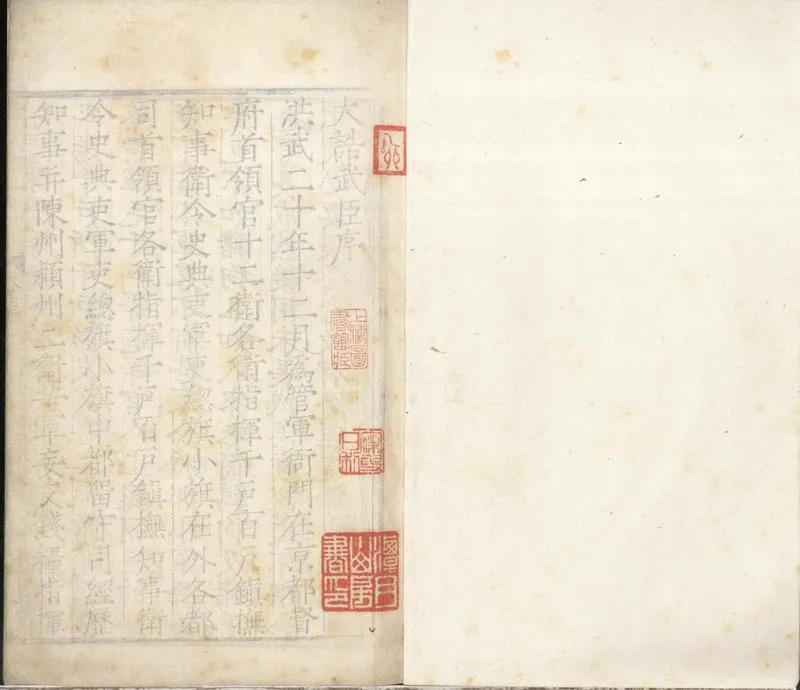 大誥武臣序
洪武二十年十二月爲管軍衙門在京都督
府首領官十二衛各衛指揮千戶百戶鎮撫
知事衛令史典吏軍吏總旗小旗在外各都
司首領官各衛指揮千戶百戶鎮撫知事衛
令史典吏軍吏總旗小旗中都留守司經歷
知事并陳州頴州二衛軍妄支錢糧指揮
上海圖書館藏